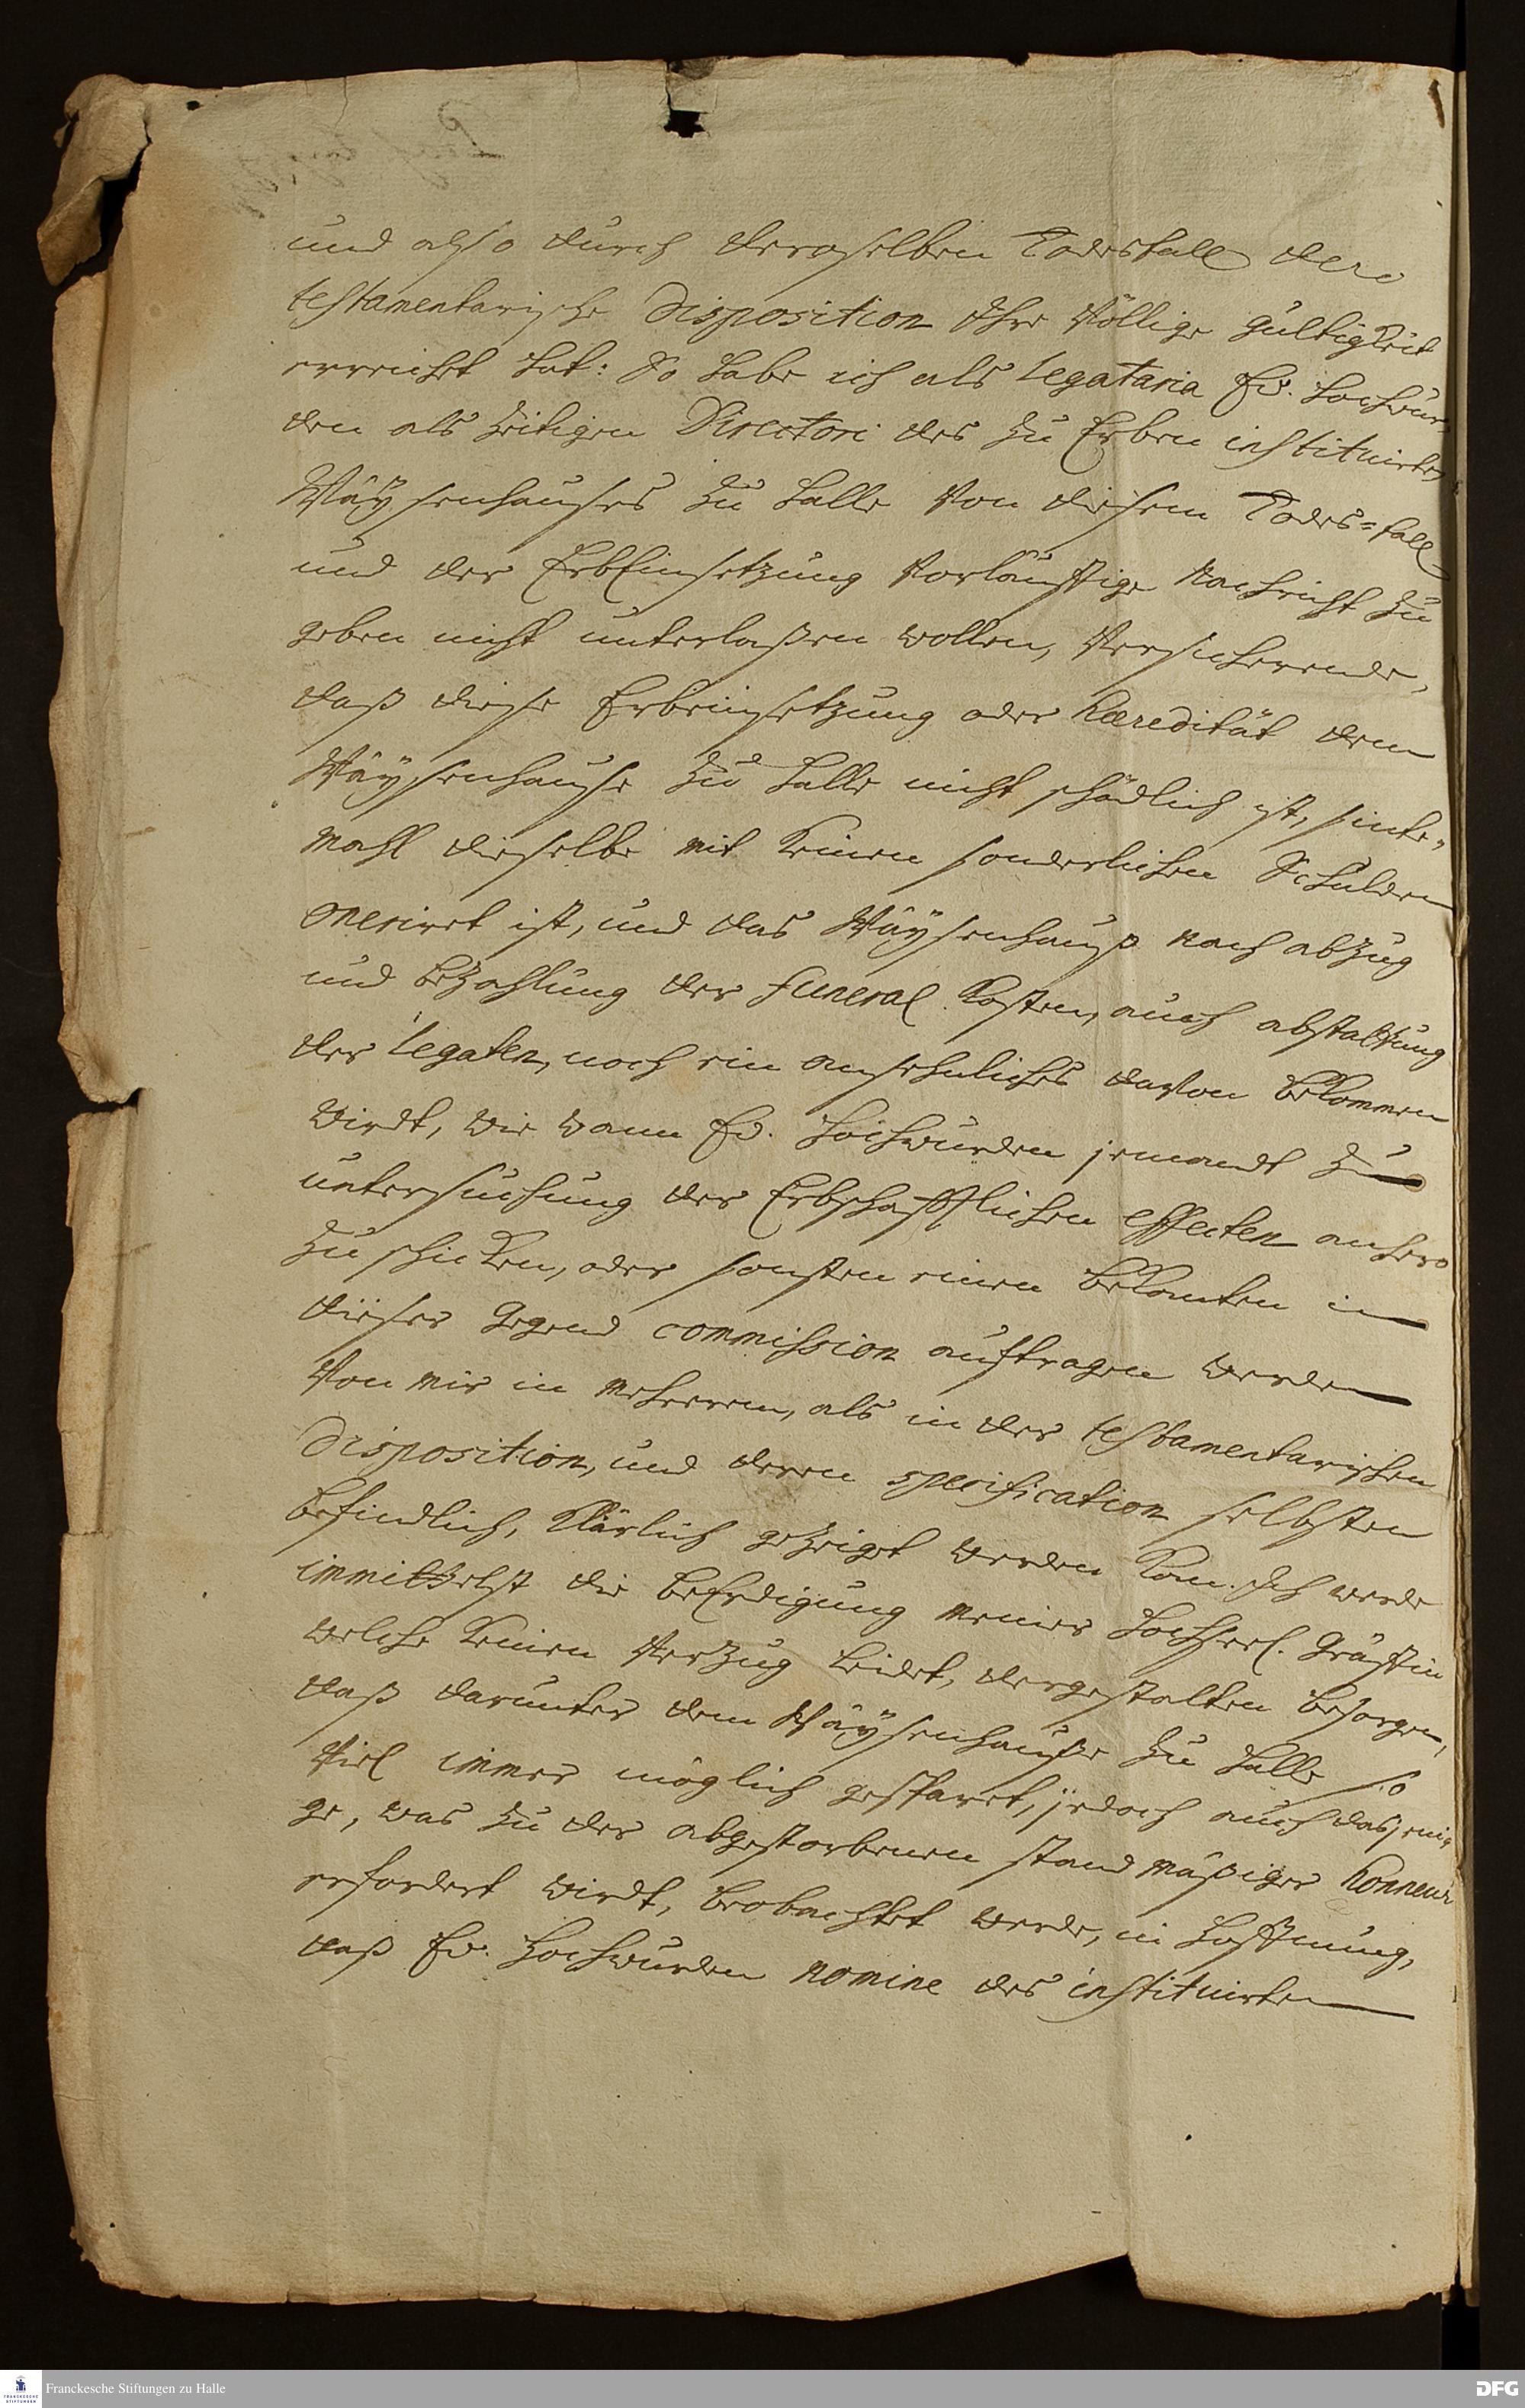 und also durch deroselben Todesfall dero
testamentarische Disposition Ihre völlige gültigkeit
erreicht hat: So habe ich als legataria Ew. Hochwür¬
den als Zeitigen Directori des zu Erben instituirten
Wäÿsenhauses zu Halle von diesem Todes=fall
und der Erbeinsetzung vorläuffige Nachricht zu
geben nicht unterlaßen wollen, versicherende,
daß diese Erbeinsetzung oder hæredität dem
Wäÿsenhause zu Halle nicht schädlich ist, sinte¬
mahl dieselbe mit keinen sonderlichen Schulden
onerirt ist, und das Wäÿsenhauß nach abzug
und bezahlung der funeral Kosten, auch abstattung
der legaten, noch ein ansehnliches davon bekommen
wirdt, wie wann Ew. Hochwürden jemandt zu
untersuchung der Erbschafftlichen effecten anhero
zu schicken, oder sonsten einen bekanten in
dieser Gegend commission auftragen werden
von mir in mehrerem, als in der testamentarischen
Disposition, und deren specification selbsten
befindlich, klärlich gezeiget werden kan. Ich werde
immittelst die beerdigung meiner Hochseel. Gräffin
welche keinen verzug leidet, dergestalten besorgen,
daß darunter dem Wäÿsenhauße zu Halle so
viel immer möglich gespart, jedoch auch dasjeni¬
ge, was zu der abgestorbenen stand mäßiger honneur
erfordert wirdt, beobachtet werde, in Hoffnung,
daß Ew. Hochwürden nomine des instituirten
Franckesche Stiftungen zu Halle
FRANCKESCHE STIFTUNGEN
DFG